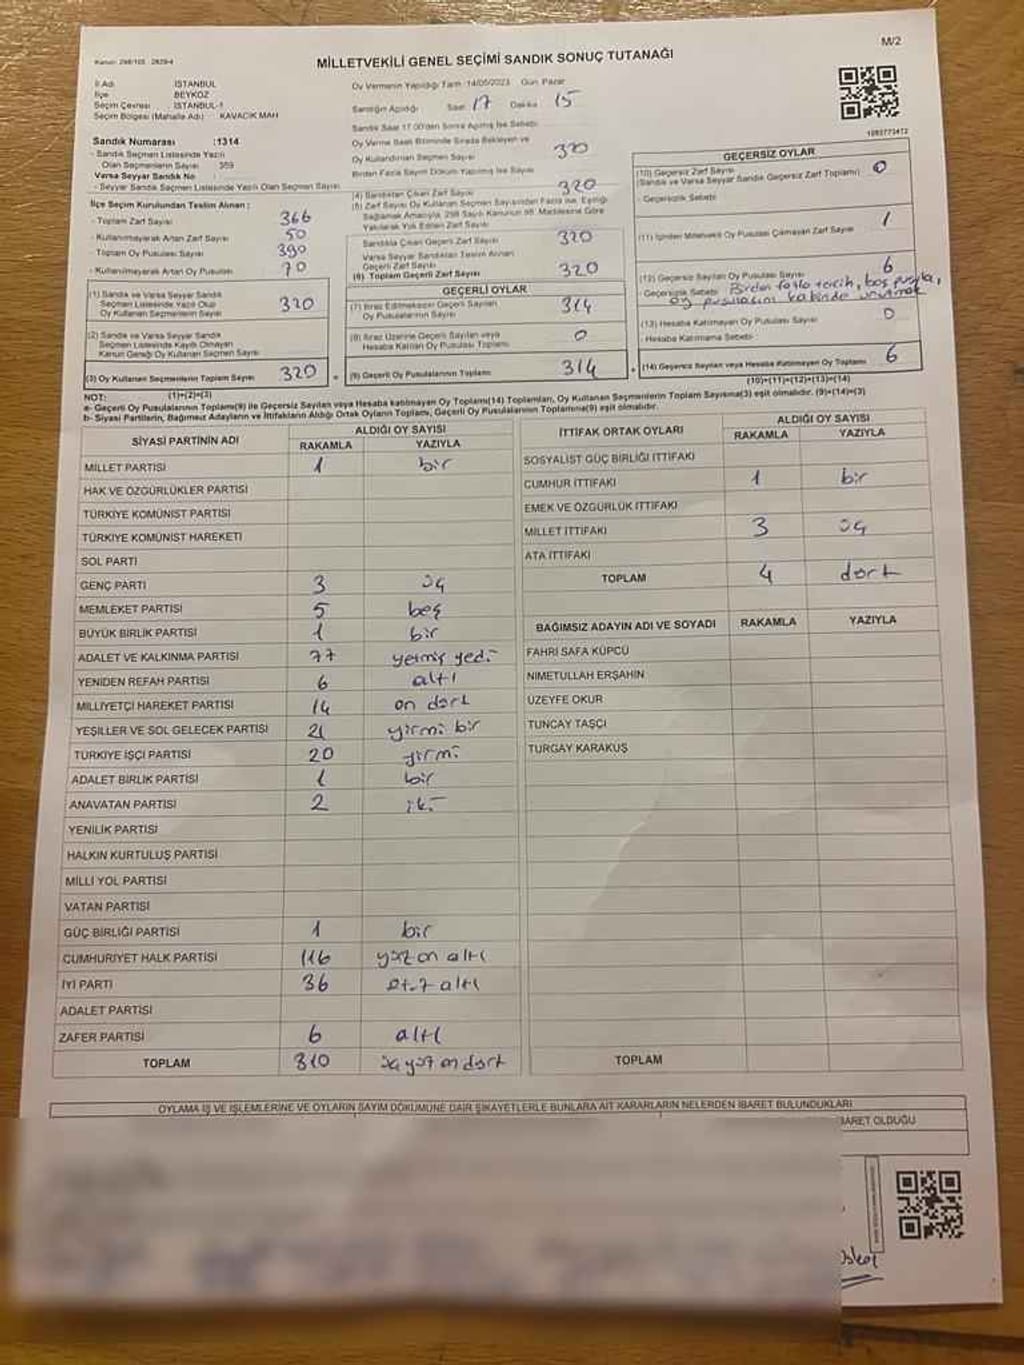 M/2
Kanun: 298/105 - 2839-4
MİLLETVEKİLİ GENEL SEÇİMİ SANDIK SONUÇ TUTANAĞI
İl Adı : İSTANBUL
İlçe : BEYKOZ
Seçim Çevresi : İSTANBUL-1
Seçim Bölgesi (Mahalle Adı) : KAVACIK MAH
Sandık Numarası :1314
- Sandık Seçmen Listesinde Yazılı
Olan Seçmenlerin Sayısı : 359
Varsa Seyyar Sandık No :
- Seyyar Sandık Seçmen Listesinde Yazılı Olan Seçmen Sayısı
İlçe Seçim Kurulundan Teslim Alınan :
- Toplam Zarf Sayısı 366
- Kullanılmayarak Artan Zarf Sayısı 50
- Toplam Oy Pusulası Sayısı 390
- Kullanılmayarak Artan Oy Pusulası 70
(1) Sandık ve Varsa Seyyar Sandık
Seçmen Listesinde Yazılı Olup
Oy Kullanan Seçmenlerin Sayısı 320
(2) Sandık ve Varsa Seyyar Sandık
Seçmen Listesinde Kayıtlı Olmayan
Kanun Gereği Oy Kullanan Seçmen Sayısı
(3) Oy Kullanan Seçmenlerin Toplam Sayısı 320
(1)+(2)=(3)
Oy Vermenin Yapıldığı Tarih :14/05/2023 Gün: Pazar
Sandığın Açıldığı Saat 17 Dakika 15
Sandık Saat 17.00'den Sonra Açılmış İse Sebebi
Oy Verme Saati Bitiminde Sırada Bekleyen ve
Oy Kullandırılan Seçmen Sayısı 320
Birden Fazla Sayım Döküm Yapılmış İse Sayısı
(4) Sandıktan Çıkan Zarf Sayısı 320
(5) Zarf Sayısı Oy Kullanan Seçmen Sayısından Fazla ise, Eşitliği
Sağlamak Amacıyla, 298 Sayılı Kanunun 98. Maddesine Göre
Yakılarak Yok Edilen Zarf Sayısı
Sandıkta Çıkan Geçerli Zarf Sayısı 320
Varsa Seyyar Sandıktan Teslim Alınan
Geçerli Zarf Sayısı
(6) Toplam Geçerli Zarf Sayısı 320
GEÇERLİ OYLAR
(7) İtiraz Edilmeksizin Geçerli Sayılan
Oy Pusulalarının Sayısı 314
(8) İtiraz Üzerine Geçerli Sayılan veya
Hesaba Katılan Oy Pusulası Toplamı 0
(9) Geçerli Oy Pusulalarının Toplamı 314
1093773412
GEÇERSİZ OYLAR
(10) Geçersiz Zarf Sayısı
(Sandık ve Varsa Seyyar Sandık Geçersiz Zarf Toplamı) 0
- Geçersizlik Sebebi
(11) İçinden Milletvekili Oy Pusulası Çıkmayan Zarf Sayısı 1
(12) Geçersiz Sayılan Oy Pusulası Sayısı 6
- Geçersizlik Sebebi Birden fazla tercih, boş pusula,
oy pusulasını kabinde unutmak
(13) Hesaba Katılmayan Oy Pusulası Sayısı 0
- Hesaba Katılmama Sebebi
(14) Geçersiz Sayılan veya Hesaba Katılmayan Oy Toplamı 6
(10)+(11)+(12)+(13)=(14)
NOT:
a- Geçerli Oy Pusulalarının Toplamı(9) ile Geçersiz Sayılan veya Hesaba Katılmayan Oy Toplamı(14) Toplamları, Oy Kullanan Seçmenlerin Toplam Sayısına(3) eşit olmalıdır. (9)+(14)=(3)
b- Siyasi Partilerin, Bağımsız Adayların ve İttifakların Aldığı Ortak Oyların Toplamı, Geçerli Oy Pusulalarının Toplamına(9) eşit olmalıdır.
SİYASİ PARTİNİN ADI ALDIĞI OY SAYISI
RAKAMLA YAZIYLA
MİLLET PARTİSİ 1 bir
HAK VE ÖZGÜRLÜKLER PARTİSİ
TÜRKİYE KOMÜNİST PARTİSİ
TÜRKİYE KOMÜNİST HAREKETİ
SOL PARTİ
GENÇ PARTİ 3 üç
MEMLEKET PARTİSİ 5 beş
BÜYÜK BİRLİK PARTİSİ 1 bir
ADALET VE KALKINMA PARTİSİ 77 yetmiş yedi
YENİDEN REFAH PARTİSİ 6 altı
MİLLİYETÇİ HAREKET PARTİSİ 14 on dört
YEŞİLLER VE SOL GELECEK PARTİSİ 21 yirmi bir
TÜRKİYE İŞÇİ PARTİSİ 20 yirmi
ADALET BİRLİK PARTİSİ 1 bir
ANAVATAN PARTİSİ 2 iki
YENİLİK PARTİSİ
HALKIN KURTULUŞ PARTİSİ
MİLLİ YOL PARTİSİ
VATAN PARTİSİ
GÜÇ BİRLİĞİ PARTİSİ 1 bir
CUMHURİYET HALK PARTİSİ 116 yüz on altı
İYİ PARTİ 36 otuz altı
ADALET PARTİSİ
ZAFER PARTİSİ 6 altı
TOPLAM 310 üç yüz on dört
İTTİFAK ORTAK OYLARI ALDIĞI OY SAYISI
RAKAMLA YAZIYLA
SOSYALİST GÜÇ BİRLİĞİ İTTİFAKI
CUMHUR İTTİFAKI 1 bir
EMEK VE ÖZGÜRLÜK İTTİFAKI
MİLLET İTTİFAKI 3 üç
ATA İTTİFAKI
TOPLAM 4 dört
BAĞIMSIZ ADAYIN ADI VE SOYADI RAKAMLA YAZIYLA
FAHRİ SAFA KÜPCÜ
NİMETULLAH ERŞAHİN
ÜZEYFE OKUR
TUNCAY TAŞÇI
TURGAY KARAKUŞ
TOPLAM
OYLAMA İŞ VE İŞLEMLERİNE VE OYLARIN SAYIM DÖKÜMÜNE DAİR ŞİKAYETLERLE BUNLARA AİT KARARLARIN NELERDEN İBARET BULUNDUKLARI
İBARET OLDUĞU